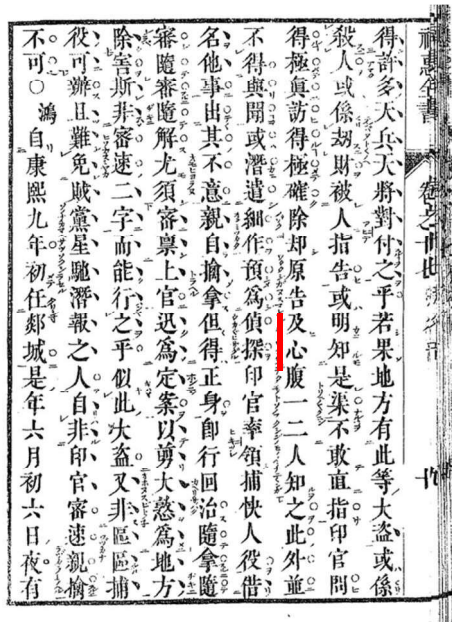 福惠全書 卷之十七
得許多天兵天將對付之乎若果地方有此等大盜或係
殺人或係刼財被人指告或明知是渠不敢直指印官問
得極眞訪得極確除却原告及心腹一二人知之此外並
不得與聞或潛遣細作預爲偵探印官率領捕快人役借
名他事出其不意親自擒拿但得正身卽行回治隨拿隨
審隨審隨解尤須審稟上官迅爲定案以剪大憝爲地方
除害斯非審速二字而能行之乎似此大盜又非區區捕
役可辦且難免賊黨星馳潛報之人自非印官審速親擒
不可○鴻自康熙九年初任郯城是年六月初六日夜有